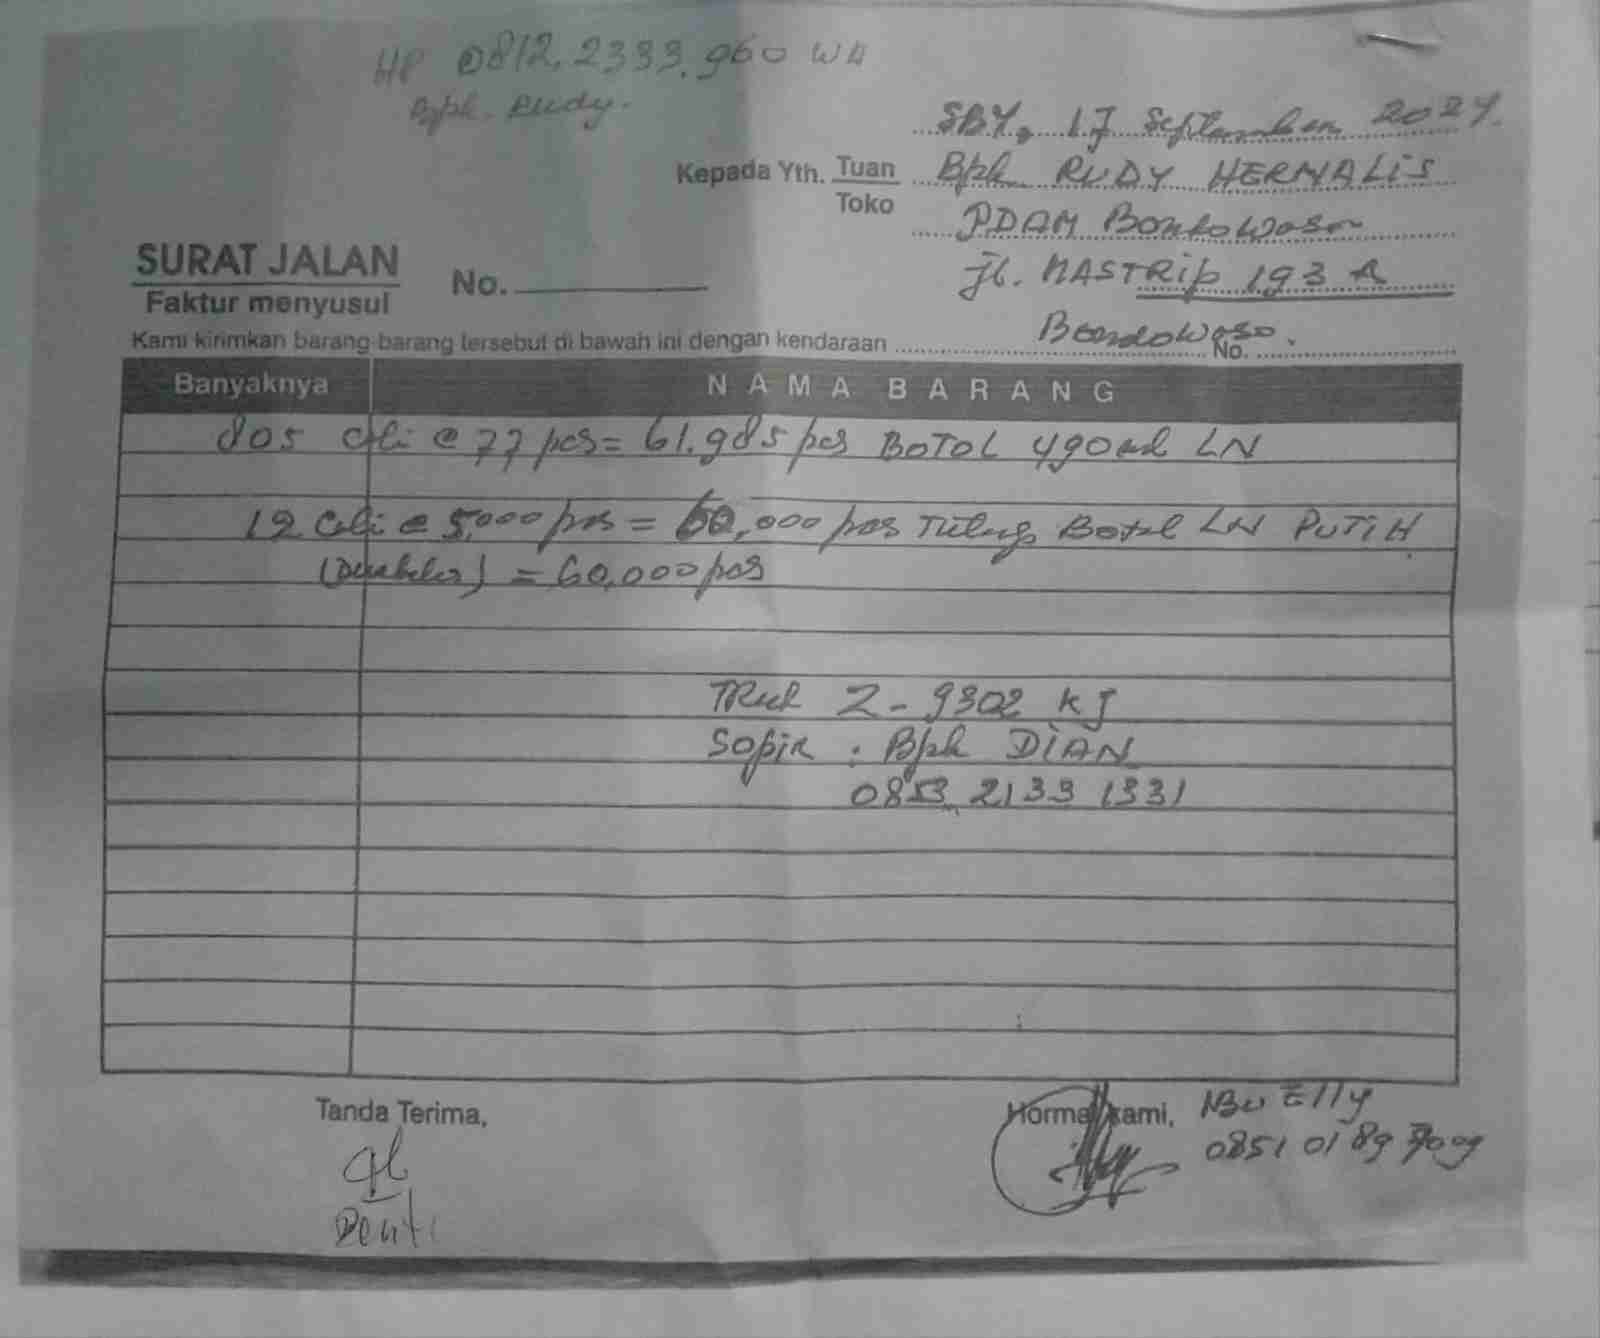 HP 0812.2333.960 WA
Bpk. Rudy.
SBY, 17 September 2024.
Kepada Yth. Tuan Bpk RUDY HERMALIS
Toko PDAM Bondowoso
SURAT JALAN No. Jl. MASTRIP 193 A
Faktur menyusul
Bondowoso.
Kami kirimkan barang-barang tersebut di bawah ini dengan kendaraan No.
Banyaknya NAMA BARANG
805 Coli @ 77 pcs = 61.985 pcs BOTOL 490ml LN
12 Coli @ 5.000 pcs = 60,000 pcs Tutup Botol LN PUTIH
= 60,000 pcs
TRuk Z-9302 KJ
Sopir : Bpk DIAN
0853 2133 1331
Tanda Terima, Hormat kami, Bu Elly
0851 0189 7009